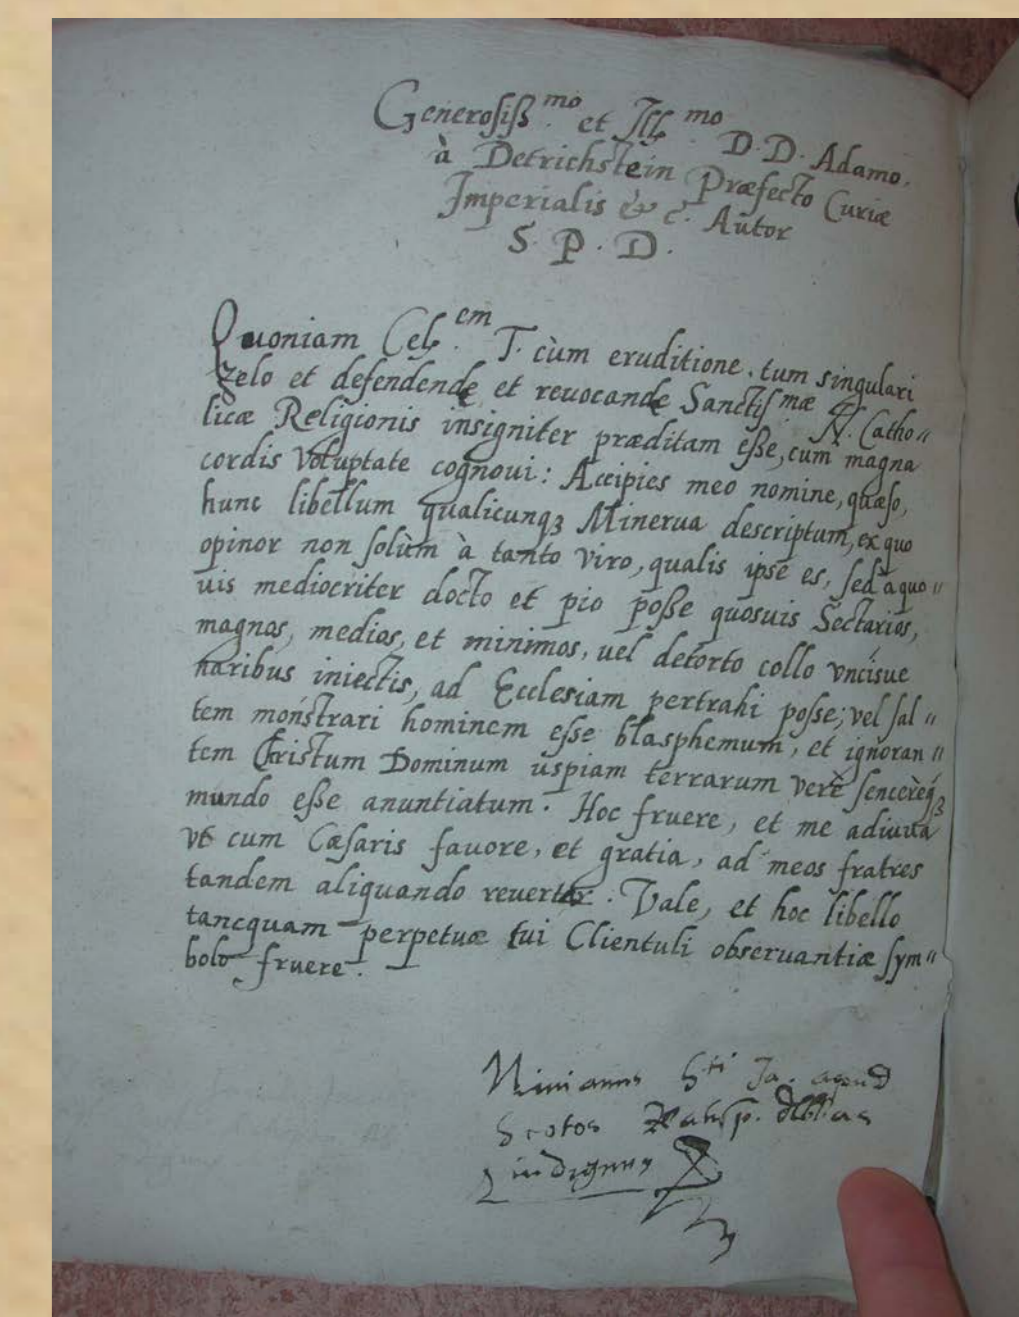 Generosiß.mo et Ill.mo D.D. Adamo.
à Detrichstein Præfecto Curiæ
Imperialis & c. Autor
S. P. D.
Quoniam Cels.em T. cùm eruditione, tum singulari
zelo et defendendę et reuocandę Sanctiſ.mæ N. Catho〃
licæ Religionis insigniter præditam eße, cum magna
cordis voluptate cognoui: Accipies meo nomine, quæſo,
hunc libellum qualicunqꝫ Minerua descriptum, ex quo
opinor non ſolùm à tanto viro, qualis ipse es, ſed à quo〃
uis mediocriter docto et pio poße quosuis Sectarios,
magnos, medios, et minimos, uel detorto collo vncisue
naribus iniectis, ad Ecclesiam pertrahi poſse; vel ſal〃
tem monstrari hominem eſse blasphemum, et ignoran〃
tem Christum Dominum uspiam terrarum verè ſencerèqꝫ
mundo eße anuntiatum. Hoc fruere, et me adiuua
vt cum Cæſaris fauore, et gratia, ad meos fratres
tandem aliquando reuertar. Vale, et hoc libello
tancquam perpetuæ tui Clientuli obseruantiæ ſym〃
bolo fruere.
Ninianus S.ti Ja. apud
Scotos Ratisp. Abbas
indignus